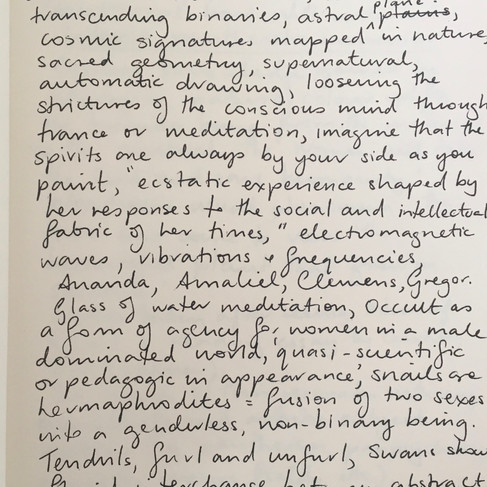 transcending binaries, astral plane ^ plains,
cosmic signatures mapped in nature,
sacred geometry, supernatural,
automatic drawing, loosening the
strictures of the conscious mind through
trance or meditation, imagine that the
spirits are always by your side as you
paint, "ecstatic experience shaped by
her responses to the social and intellectual
fabric of her times," electromagnetic
waves, vibrations & frequencies,
Ananda, Amaliel, Clemens, Gregor.
Glass of water meditation, Occult as
a form of agency for women in a male
dominated world, 'quasi-scientific
or pedagogic in appearance', snails are
hermaphrodites = fusion of two sexes
into a genderless, non-binary being.
Tendrils, furl and unfurl, Swans show
abstract